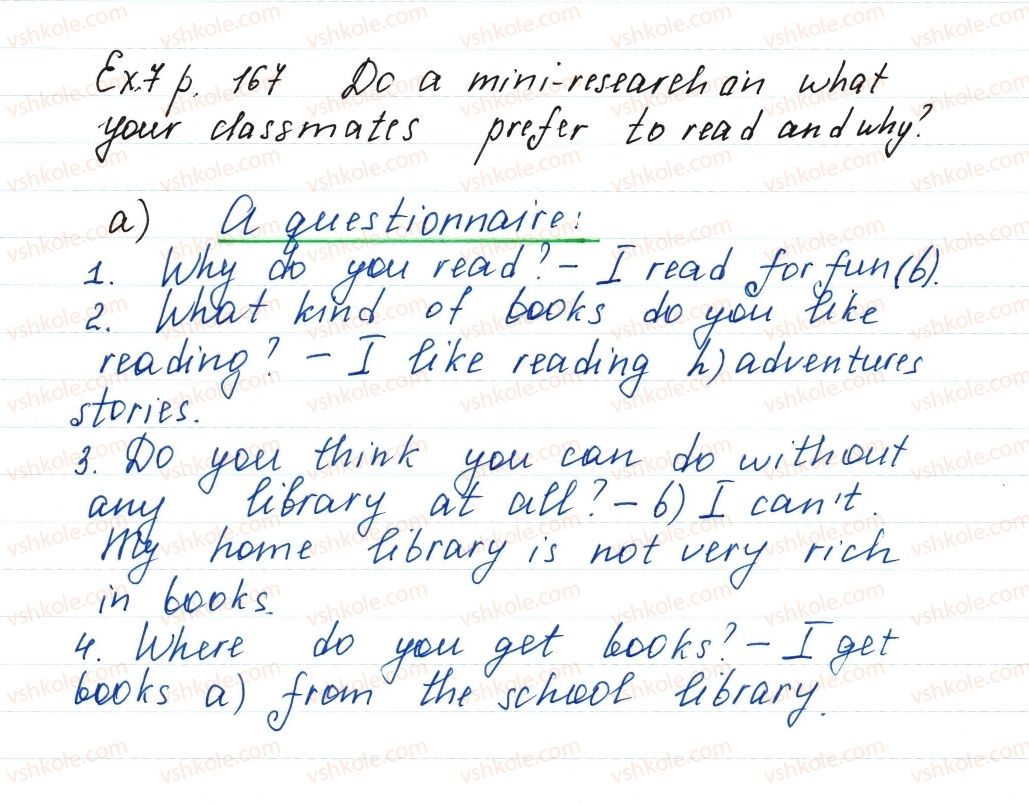 Ex.7 p. 167 Do a mini-research on what
your classmates prefer to read and why?
a) A questionnaire:
1. Why do you read? – I read for fun (b).
2. What kind of books do you like
reading? – I like reading h) adventures
stories.
3. Do you think you can do without
any library at all? – b) I can't.
My home library is not very rich
in books.
4. Where do you get books? – I get
books a) from the school library.
vshkole.com